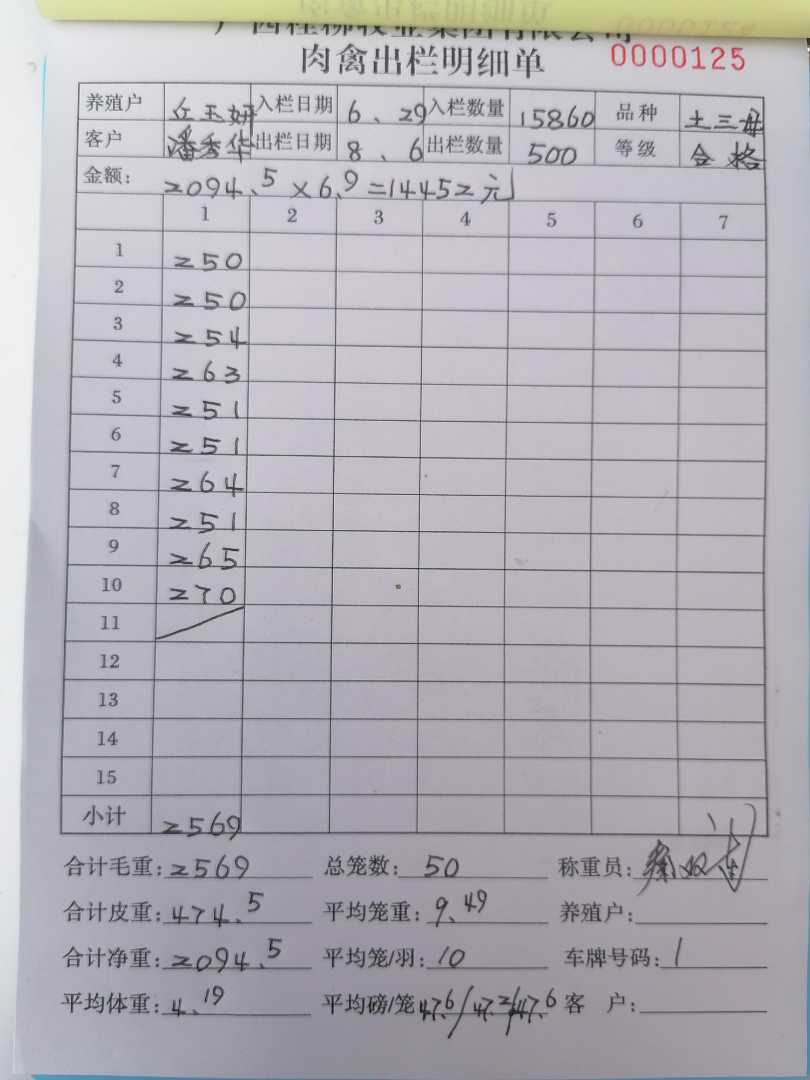 广西桂柳牧业集团有限公司
肉禽出栏明细单 0000125
养殖户 丘玉妍 入栏日期 6、29 入栏数量 15860 品种 土三母
客户 潘秀华 出栏日期 8、6 出栏数量 500 等级 合格
金额: 2094.5×6.9=14452元
1 2 3 4 5 6 7
1 250
2 250
3 254
4 263
5 251
6 251
7 264
8 251
9 265
10 270
11
12
13
14
15
小计 2569
合计毛重:2569 总笼数:50 称重员:
合计皮重:474.5 平均笼重:9.49 养殖户:
合计净重:2094.5 平均笼/羽:10 车牌号码:1
平均体重:4.19 平均磅/笼 47.6/47.2/47.6 客 户: